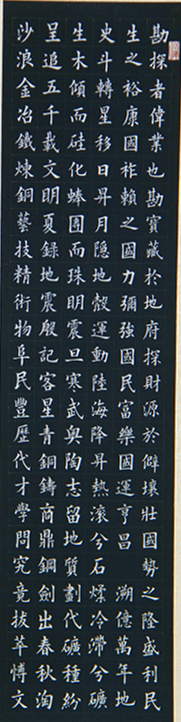 勘探者偉業也勘寶藏於地府探財源於僻壤壯國勢之隆盛利民
生之裕康國祚賴之國力彌強國民富樂國運亨昌 溯億萬年地
史斗轉星移日昇月隱地殼運動陸海降昇熱滾兮石冷滯兮礦
生木傾而硅化而珠明震旦寒武奧陶志留地質劃代礦種紛
呈追五千載文明夏錄地震殷記客星青銅鑄商鼎鋼劍出春秋淘
沙浪金冶鐵煉銅藝技精術物阜民豐歷代才學問究竟拔萃博文